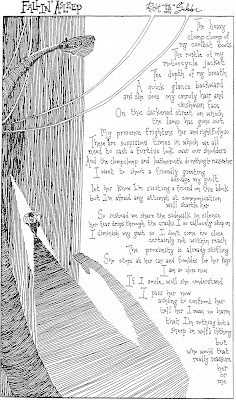 FALLIN' ASLEEP
The heavy
clomp clomp of
my combat boots
The rustle of my
motorcycle jacket
The depth of my breath
A quick glance backward
and she sees my unruly hair and
unshaven face
On this darkened street on which
the lamp has gone out
My presence frightens her and rightfully so
These are suspicious times in which we all
need to cast a furtive look over our shoulders
And the clompclomp and leatherrustle do nothing to reassure her
I want to shout a friendly greeting
assuage my guilt
let her know I'm visiting a friend on this block
but I'm afraid any attempt at communication
will startle her
So instead we share the sidewalk in silence
her fear drips through the cracks I so callously step on
I diminish my gait so I don't come too close
certainly not within reach
The proximity is already stifling
She stops at her car and fumbles for her keys
I am so close now
If I smile, will she understand
I pass her now
aching to confront her
tell her I mean no harm
that I'm nothing but a
sheep in wolf's clothing
but
who would that
really reassure
her
or
me